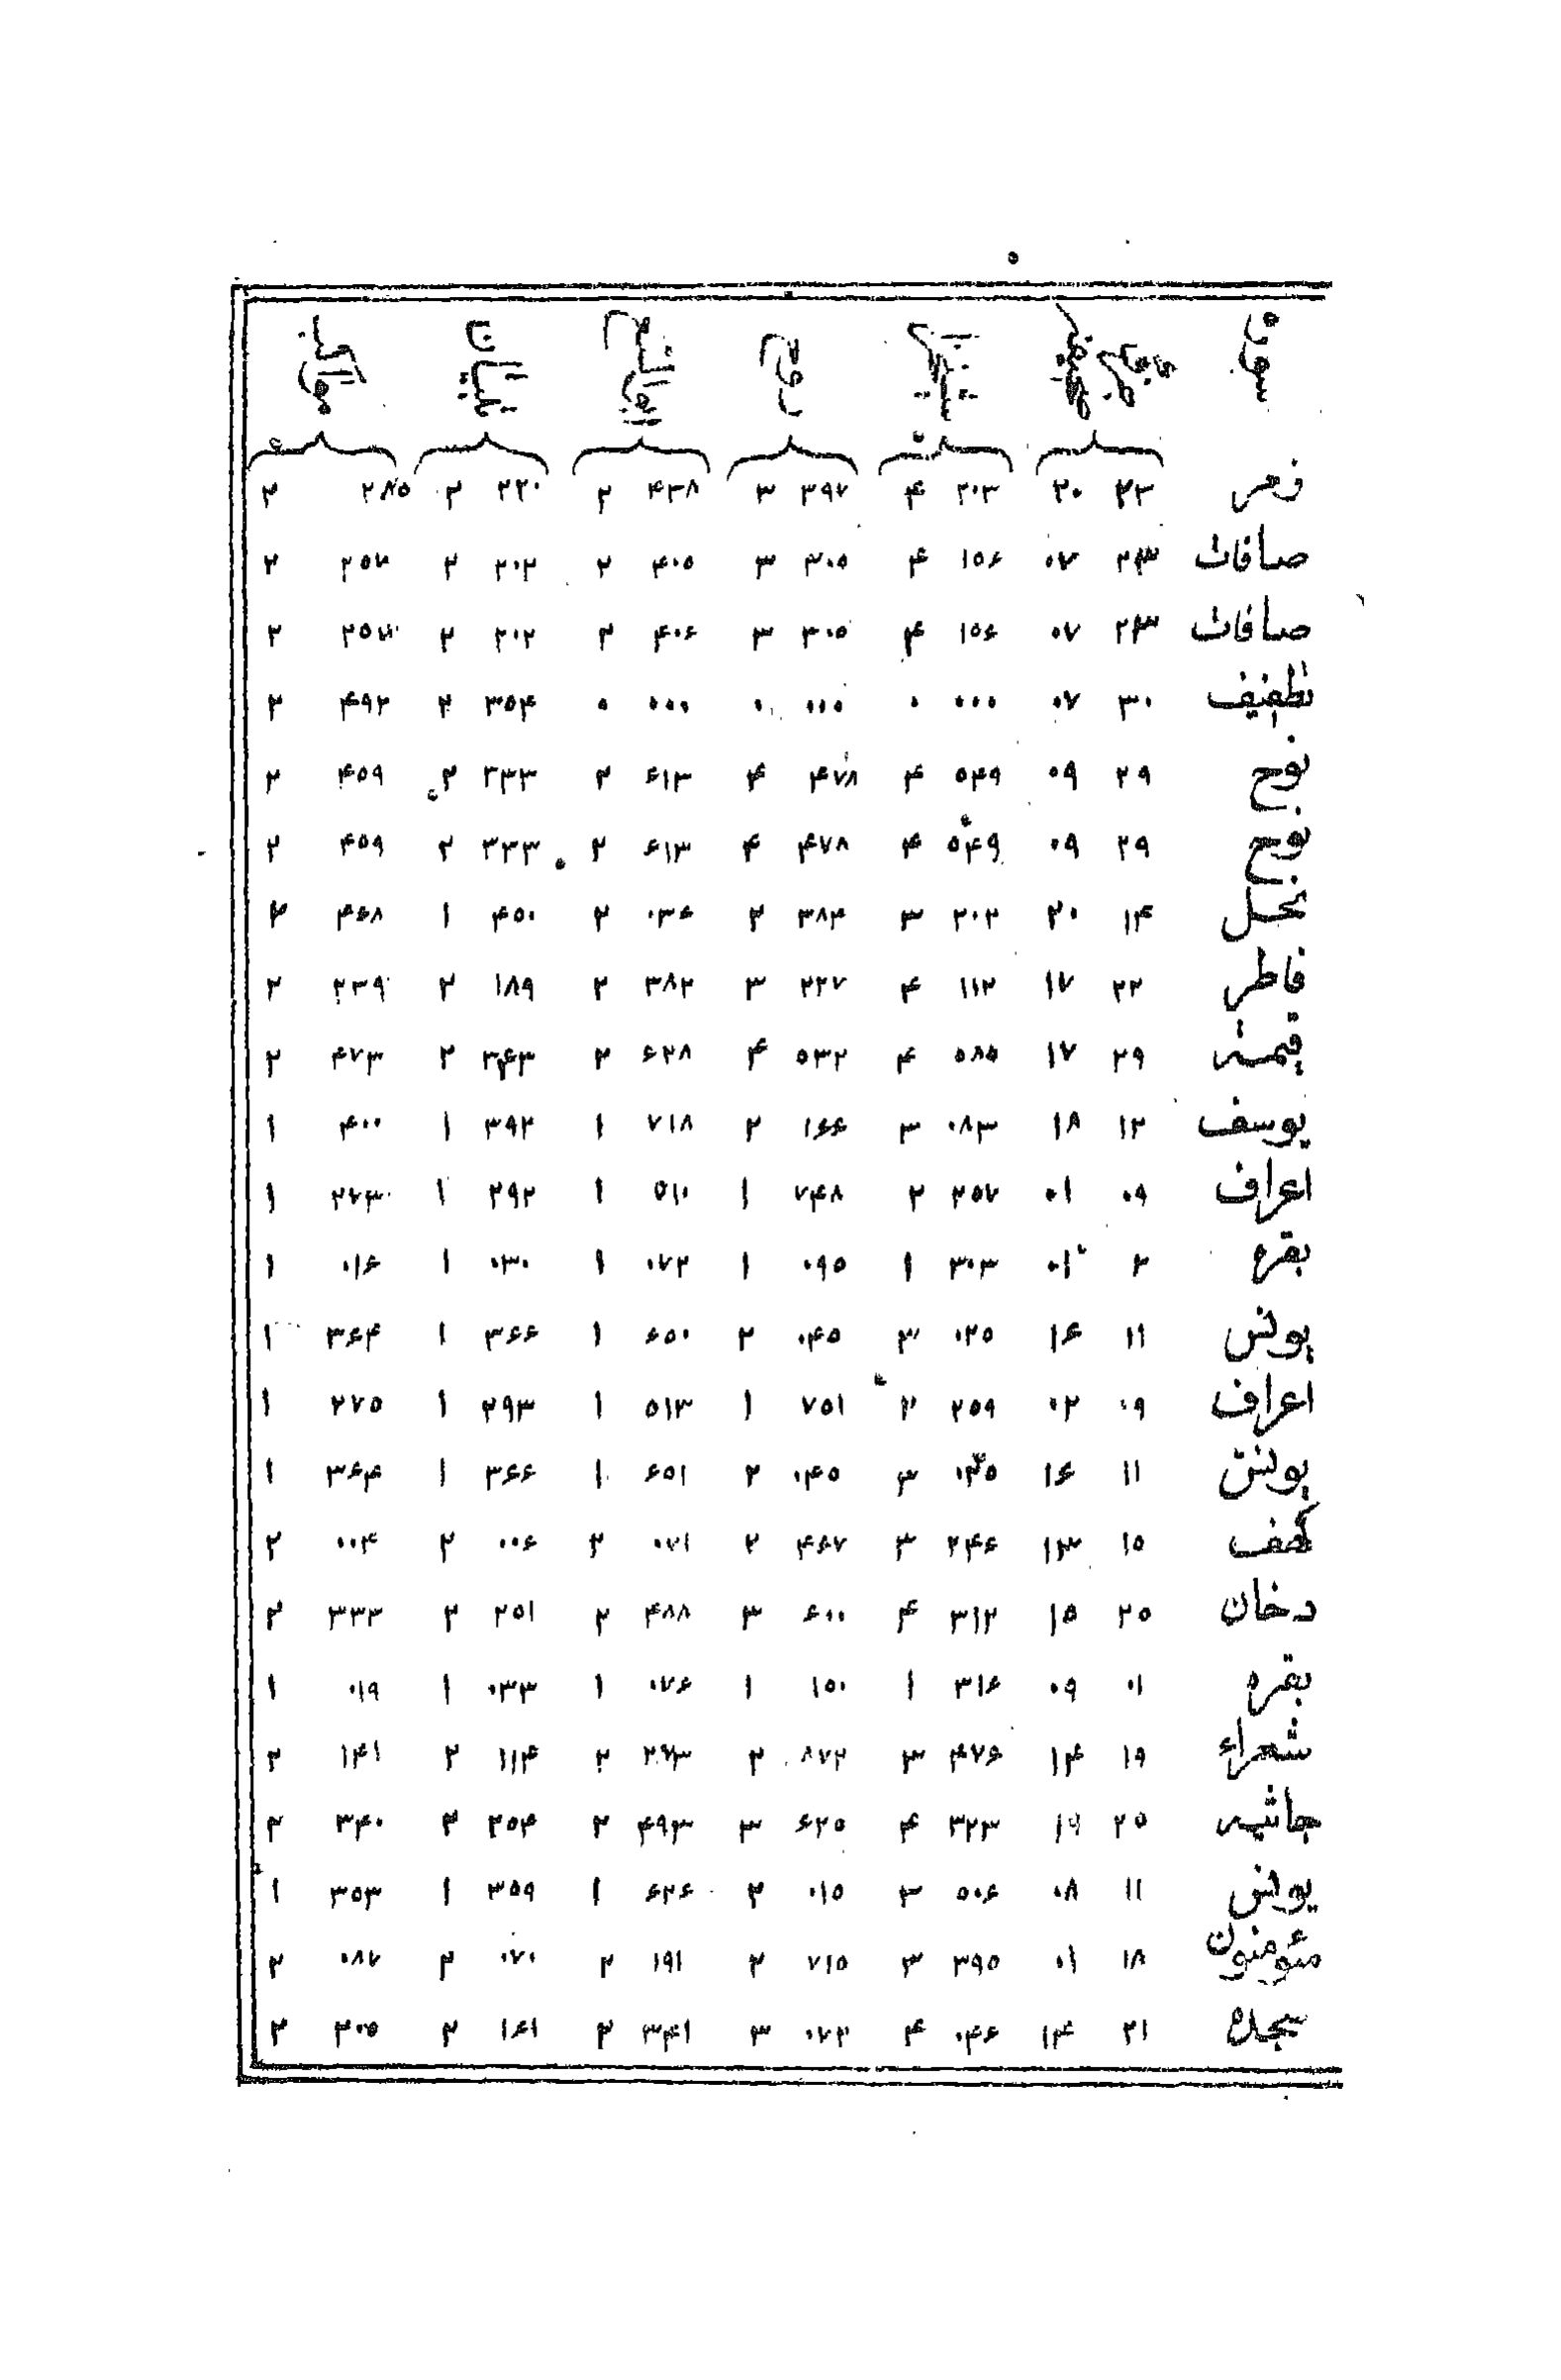 زمر ۲۳ ۲۰ ۲۰۳ ۴ ۳۹۷ ۳ ۴۳۸ ۲ ۲۲۰ ۲ ۲۸۵ ۲
صافات ۲۳ ۰۷ ۱۵۶ ۴ ۳۰۵ ۳ ۴۰۵ ۲ ۲۰۲ ۲ ۲۵۷ ۲
صافات ۲۳ ۰۷ ۱۵۶ ۴ ۳۰۵ ۳ ۴۰۶ ۲ ۲۰۲ ۲ ۲۵۷ ۲
تطفیف ۳۰ ۰۷ ۰۰۰ ۰ ۰۰۰ ۰ ۰۰۰ ۰ ۳۵۴ ۲ ۴۹۲ ۲
نوح ۲۹ ۰۹ ۵۴۹ ۴ ۴۷۸ ۴ ۶۱۳ ۲ ۳۳۳ ۲ ۴۵۹ ۲
نوح ۲۹ ۰۹ ۵۴۹ ۴ ۴۷۸ ۴ ۶۱۳ ۲ ۳۳۳ ۲ ۴۵۹ ۲
نحل ۱۴ ۲۰ ۲۰۲ ۳ ۳۸۴ ۲ ۰۳۶ ۲ ۴۵۰ ۱ ۴۶۸ ۲
فاطر ۲۲ ۱۷ ۱۱۲ ۴ ۲۲۷ ۳ ۳۸۲ ۲ ۱۸۹ ۲ ۲۳۹ ۲
قیمة ۲۹ ۱۷ ۵۸۵ ۴ ۵۳۲ ۴ ۶۲۸ ۲ ۳۴۳ ۲ ۴۷۳ ۲
یوسف ۱۲ ۱۸ ۰۸۳ ۳ ۱۶۶ ۲ ۷۱۸ ۱ ۳۹۲ ۱ ۴۰۰ ۱
اعراف ۰۹ ۰۱ ۲۵۷ ۲ ۷۴۸ ۱ ۵۱۰ ۱ ۲۹۲ ۱ ۲۷۳ ۱
بقره ۲ ۰۱ ۳۰۳ ۱ ۰۹۵ ۱ ۰۷۲ ۱ ۰۳۰ ۱ ۰۱۶ ۱
یونس ۱۱ ۱۶ ۰۲۵ ۳ ۰۴۵ ۲ ۶۵۰ ۱ ۳۶۶ ۱ ۳۶۴ ۱
اعراف ۰۹ ۰۲ ۲۵۹ ۲ ۷۵۱ ۱ ۵۱۳ ۱ ۲۹۳ ۱ ۲۷۵ ۱
یونس ۱۱ ۱۶ ۳ ۰۴۵ ۲ ۶۵۱ ۱ ۳۶۶ ۱ ۳۶۴ ۱
کهف ۱۵ ۱۳ ۲۴۶ ۳ ۴۶۷ ۲ ۰۷۱ ۲ ۰۰۶ ۲ ۰۰۴ ۲
دخان ۲۵ ۱۵ ۳۱۲ ۴ ۶۰۰ ۳ ۴۸۸ ۲ ۲۵۱ ۲ ۳۳۲ ۲
بقره ۰۱ ۰۹ ۳۱۶ ۱ ۱۵۰ ۱ ۰۷۶ ۱ ۰۳۳ ۱ ۰۱۹ ۱
شعراء ۱۹ ۱۴ ۴۷۶ ۳ ۸۷۲ ۲ ۲۷۳ ۲ ۱۱۴ ۲ ۱۴۱ ۲
جاثیه ۲۵ ۱۹ ۳۲۳ ۴ ۶۲۵ ۳ ۴۹۳ ۲ ۲۵۴ ۲ ۳۴۰ ۲
یونس ۱۱ ۰۸ ۵۰۶ ۳ ۰۱۵ ۲ ۶۲۶ ۱ ۳۵۹ ۱ ۳۵۳ ۱
مئومنون ۱۸ ۰۱ ۳۹۵ ۳ ۷۱۵ ۲ ۱۹۱ ۲ ۰۷۰ ۲ ۰۸۷ ۲
سجده ۲۱ ۱۴ ۰۴۶ ۴ ۰۷۲ ۳ ۳۴۱ ۲ ۱۶۱ ۲ ۲۰۵ ۲